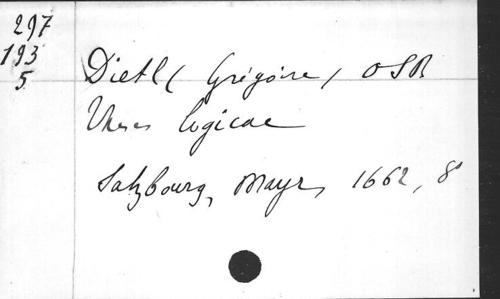 297
193
5
Dietl (Grégoire) OSB
Theses logicae
Salzbourg, Mayr, 1662, 8°